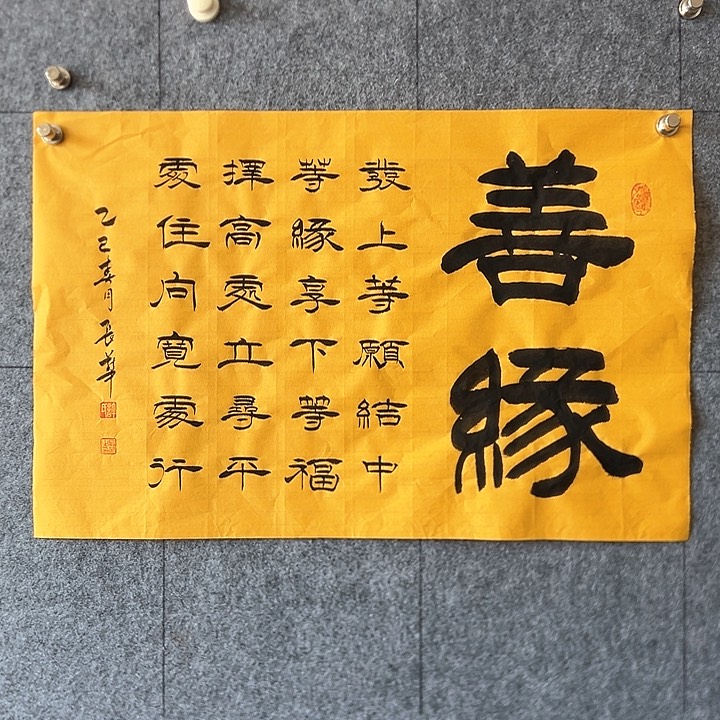 善緣
發上等願結中
等緣享下等福
擇高處立尋平
處住向寬處行
乙巳春月長華